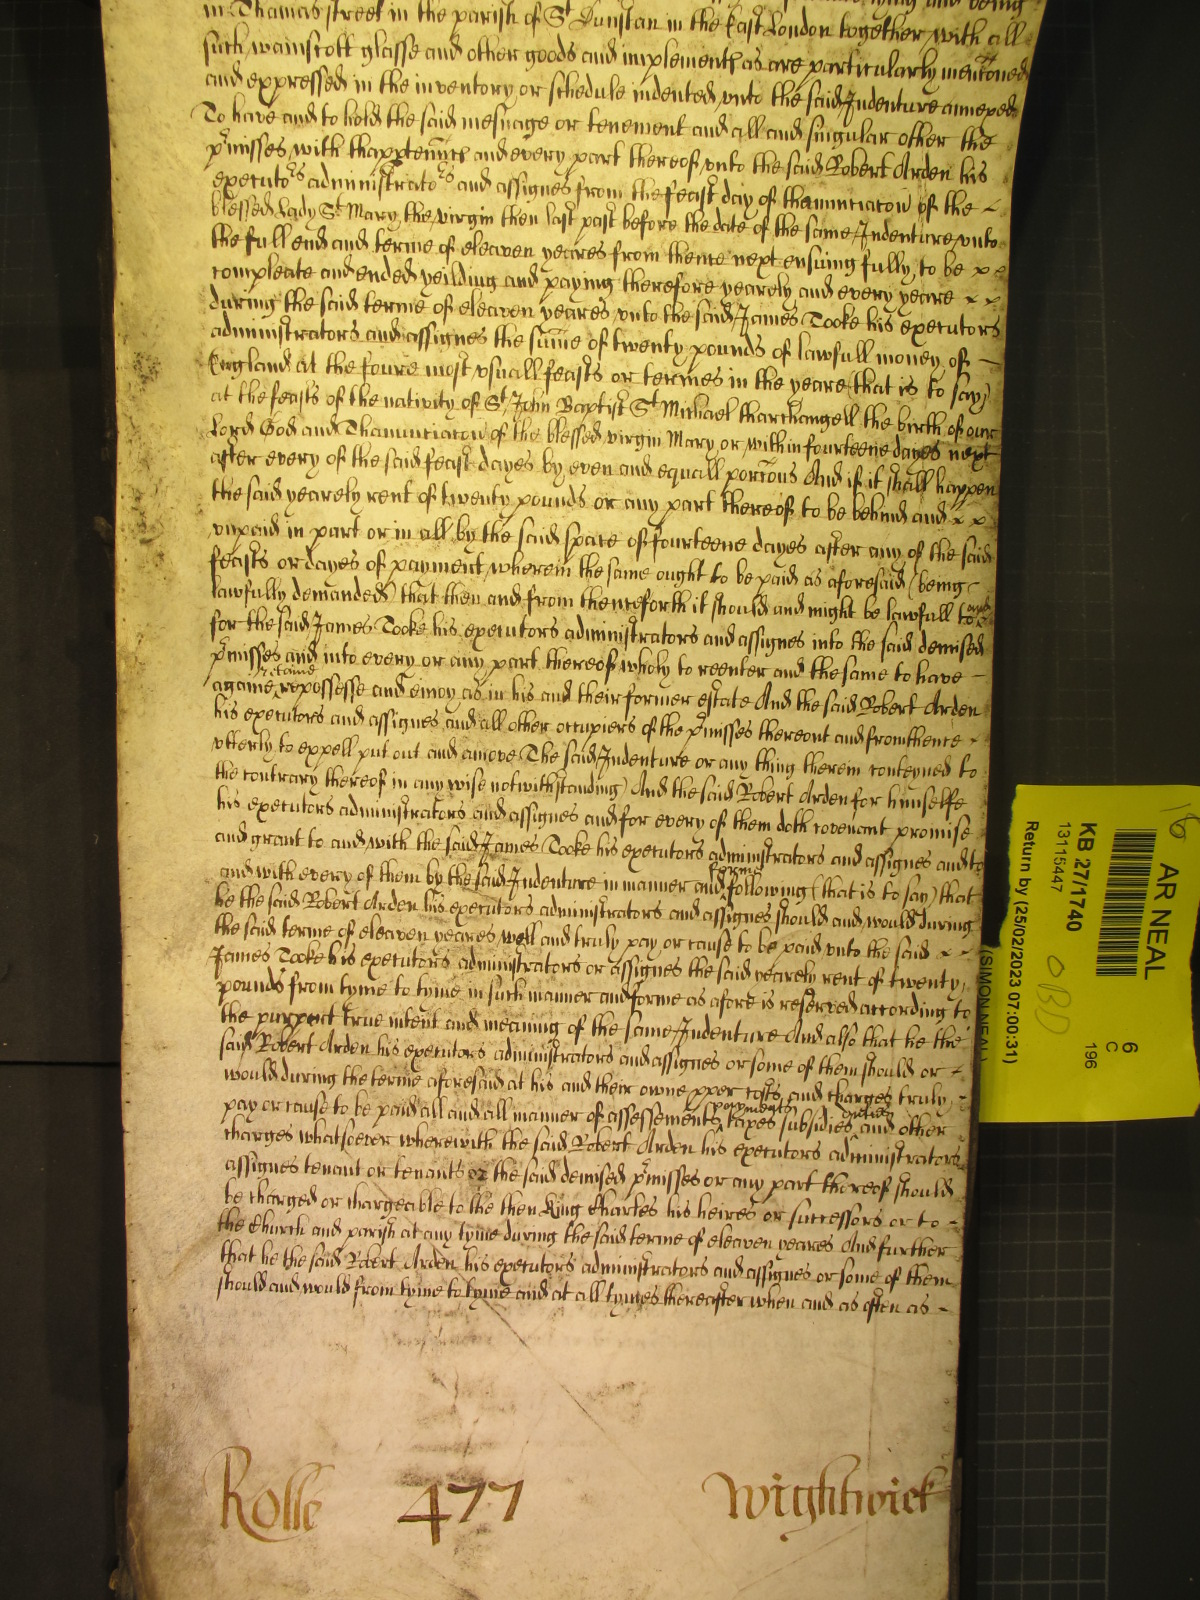 in Thames street in the parish of St Dunstan in the East London together with all
such wainscott glasse and other goods and implements as are particularly mentioned
and expressed in the inventory or schedule indented vnto the said Indenture annexed
To have and to hold the said mesuage or tenement and all and singular other the
p'misses with thapptenncs and every part thereof vnto the said Robert Arden his
executors administrators and assignes from the feast day of thanunciacon of the
blessed Lady St Mary the virgin then last past before the date of the same Indenture vnto
the full end and terme of eleaven yeares from thence next ensuing fully to be
compleate and ended yeilding and paying therefore yearely and every yeare
during the said terme of eleaven yeares vnto the said James Tooke his executors
administrators and assignes the sume of twenty pounds of lawfull money of
England at the foure most vsuall feasts or termes in the yeare (that is to say)
at the feasts of the nativity of St John Baptist St Michael tharchangell the birth of our
Lord God and Thanunciacon of the blessed virgin Mary or within fourteene dayes next
after every of the said feast dayes by even and equall porcons And if it shall happen
the said yearely rent of twenty pounds or any part thereof to be behind and
vnpaid in part or in all by the said space of fourteene dayes after any of the said
feasts or dayes of payment wherein the same ought to be paid as aforesaid (being
lawfully demanded) that then and from thenceforth it should and might be lawfull to and
for the said James Tooke his executors administrators and assignes into the said demised
p'misses and into every or any part thereof wholy to reenter and the same to have
againe retaine repossesse and enioy as in his and their former estate And the said Robert Arden
his executors and assignes and all other occupiers of the p'misses thereout and from thence
vtterly to expell put out and amove The said Indenture or any thing therein conteyned to
the contrary thereof in any wise notwithstanding) And the said Robert Arden for himselfe
his executors administrators and assignes and for every of them doth covenant promise
and grant to and with the said James Tooke his executors administrators and assignes and to
and with every of them by the said Indenture in manner and forme following (that is to say) that
he the said Robert Arden his executors administrators and assignes should and would during
the said terme of eleaven yeares well and truly pay or cause to be paid vnto the said
James Tooke his executors administrators or assignes the said yearely rent of twenty
pounds from tyme to tyme in such manner and forme as afore is reserved according to
the purport true intent and meaning of the same Indenture And also that he the
said Robert Arden his executors administrators and assignes or some of them should or
would during the terme aforesaid at his and their owne pper costs and charges truly
pay or cause to be paid all and all manner of assessements payments taxes subsidies duties and other
charges whatsoever wherewith the said Robert Arden his executors administrators
assignes tenant or tenants or the said demised p'misses or any part thereof should
be charged or chargeable to the then King Charles his heires or successors or to
the Church and parish at any tyme during the said terme of eleaven yeares And further
that he the said Robert Arden his executors administrators and assignes or some of them
should and would from tyme to tyme and at all tymes thereafter when and as often as
Rolle 477 Wightwick
AR NEAL
KB 27/1740
13115447
Return by (25/02/2023 07:00:31)
(SIMON NEAL)
6
C
196
16
OBD